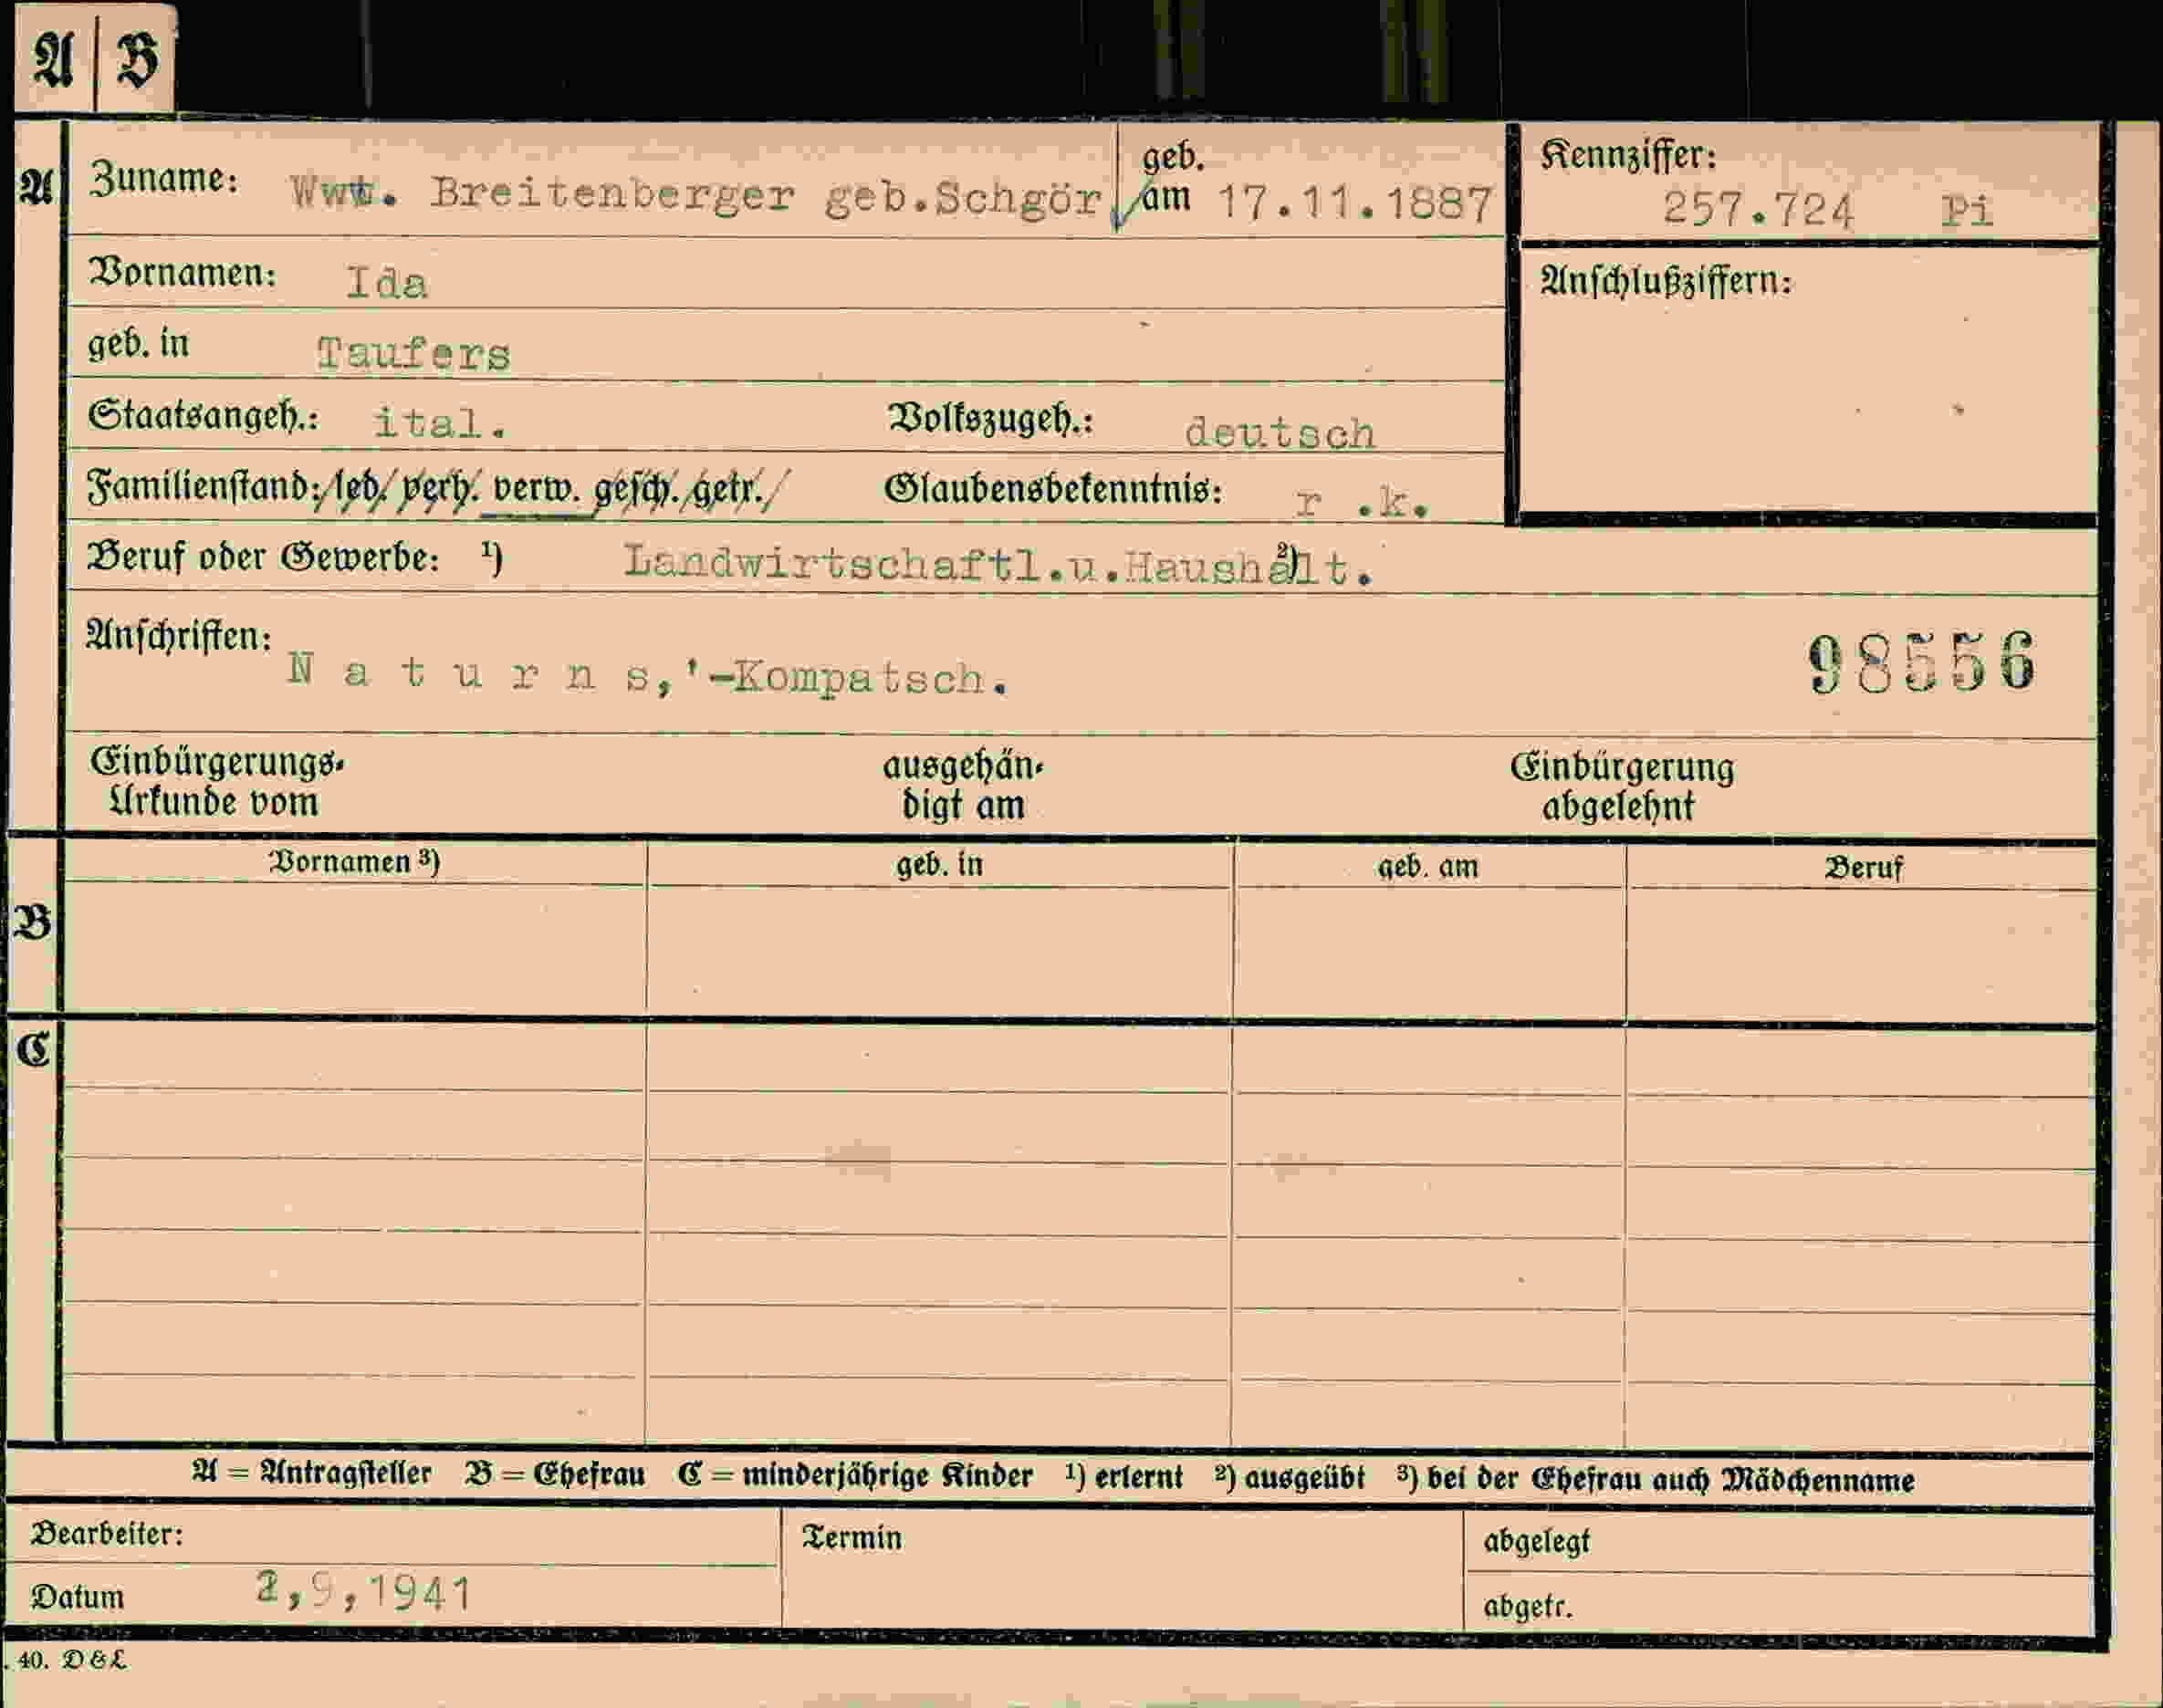 A | B
A Zuname: Wwt. Breitenberger geb.Schgör geb. am 17.11.1887 Kennziffer: 257.724 Pi
Vornamen: Ida Anschlußziffern:
geb. in Taufers
Staatsangeh.: ital. Volkszugeh.: deutsch
Familienstand: led. verh. verw. gesch. getr. Glaubensbekenntnis: r .k.
Beruf oder Gewerbe: ¹) Landwirtschaftl.u.Haushalt. ²)
Anschriften: N a t u r n s,'-Kompatsch. 98556
Einbürgerungs- ausgehän- Einbürgerung
Urkunde vom digt am abgelehnt
Vornamen ³) geb. in geb. am Beruf
B
C
A = Antragsteller B = Ehefrau C = minderjährige Kinder ¹) erlernt ²) ausgeübt ³) bei der Ehefrau auch Mädchenname
Bearbeiter: Termin abgelegt
Datum 2,9,1941 abgetr.
. 40. D & L